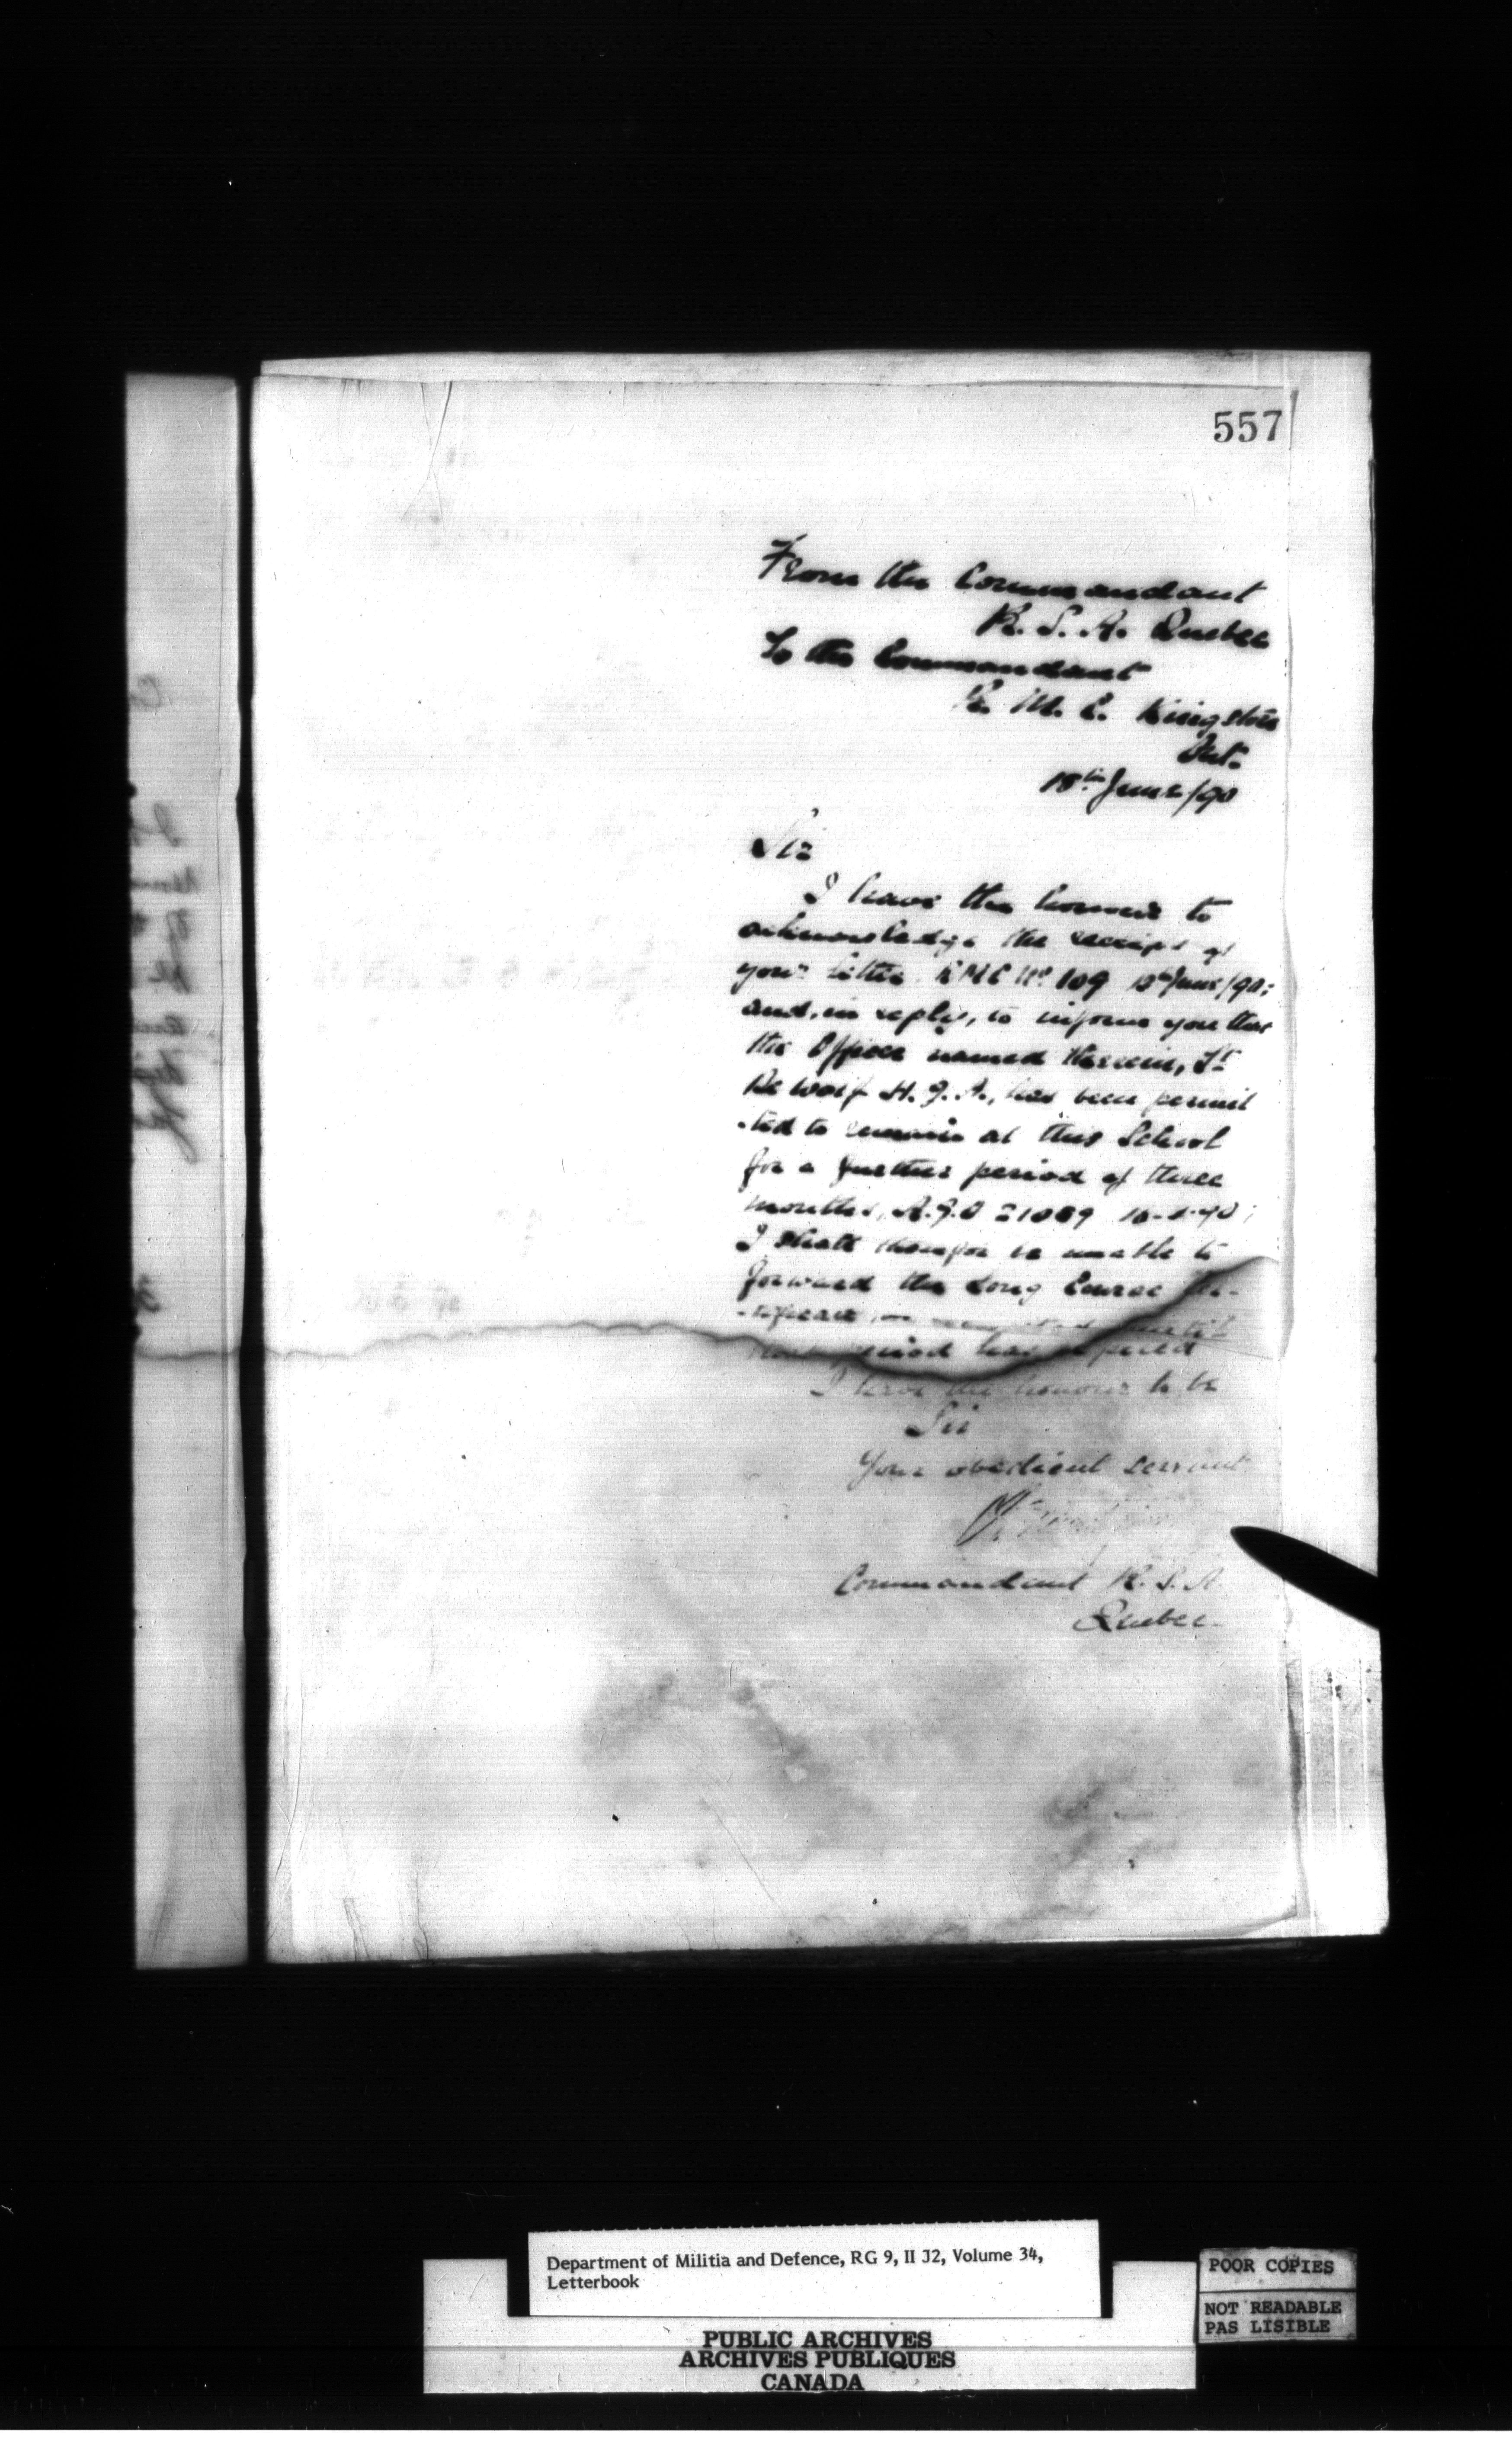 557
From the Commandant
R. S. A. Quebec
To the Commandant
R. M. C. Kingston
Ont.
18th June/90
Sir
I have the honour to
acknowledge the receipt of
your letter RMC No 109 June/90;
and, in reply, to inform you that
the Officer named therein, Lt
De Wolf H. G. A., has been permit
-ted to remain at this School
for a further period of three
months, A.G.O 21089
I shall therefore be unable to
forward the Long Course Cer-
-tificate until
period has expired
I have the honour to be
Sir
Your obedient servant
Commandant R. S. A.
Quebec
Department of Militia and Defence, RG 9, II J2, Volume 34,
Letterbook
POOR COPIES
NOT READABLE
PAS LISIBLE
PUBLIC ARCHIVES
ARCHIVES PUBLIQUES
CANADA